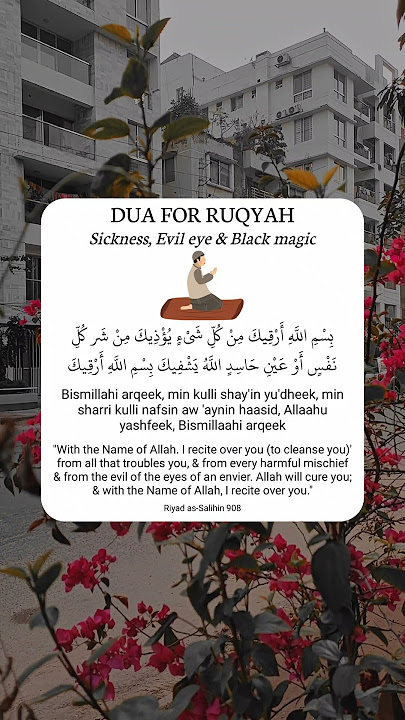 DUA FOR RUQYAH
Sickness, Evil eye & Black magic
بِسْمِ اللَّهِ أَرْقِيكَ مِنْ كُلِّ شَىْءٍ يُؤْذِيكَ مِنْ شَر كُلِّ
نَفْسٍ أَوْ عَيْنِ حَاسِدٍ اللَّهُ يَشْفِيكَ بِسْمِ اللَّهِ أَرْقِيكَ
Bismillahi arqeek, min kulli shay'in yu'dheek, min
sharri kulli nafsin aw 'aynin haasid, Allaahu
yashfeek, Bismillaahi arqeek
"With the Name of Allah. I recite over you (to cleanse you)'
from all that troubles you, & from every harmful mischief
& from the evil of the eyes of an envier. Allah will cure you;
& with the Name of Allah, I recite over you."
Riyad as-Salihin 908